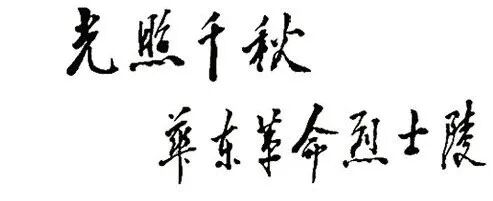 光照千秋
華东革命烈士陵